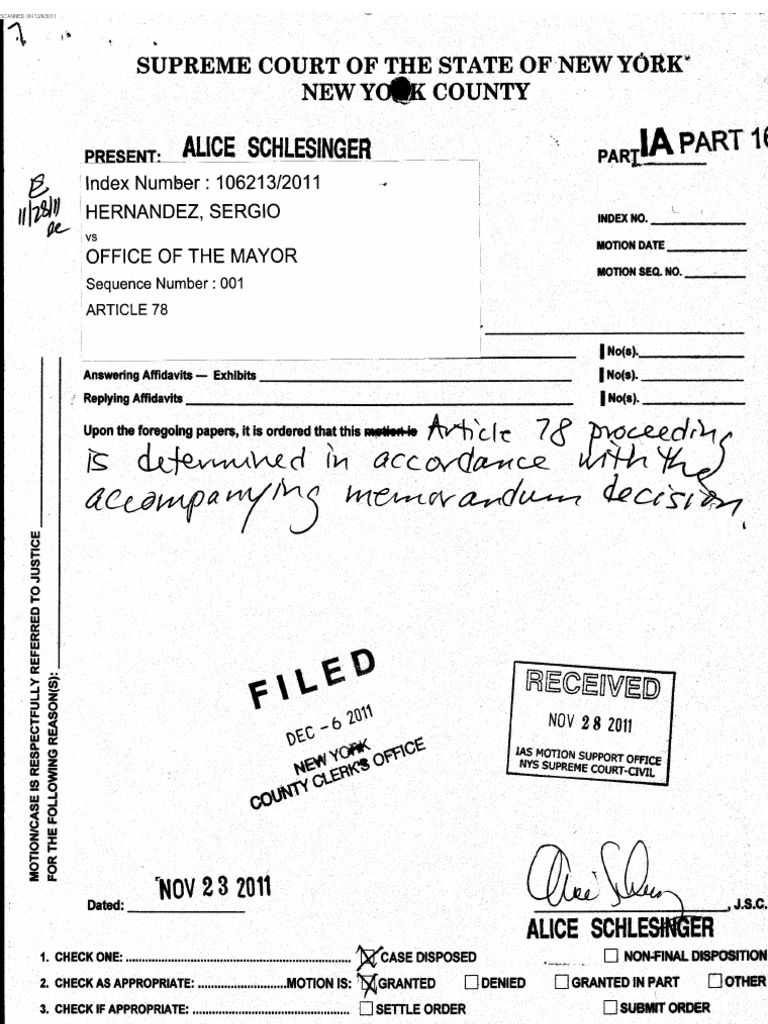 SCANNED ON 12/6/2011
SUPREME COURT OF THE STATE OF NEW YORK
NEW YORK COUNTY
PRESENT: ALICE SCHLESINGER
PART IA PART 16
Index Number : 106213/2011
HERNANDEZ, SERGIO
vs
OFFICE OF THE MAYOR
Sequence Number : 001
ARTICLE 78
11/28/11
INDEX NO.
MOTION DATE
MOTION SEQ. NO.
No(s).
Answering Affidavits — Exhibits No(s).
Replying Affidavits No(s).
Upon the foregoing papers, it is ordered that this motion is Article 78 proceeding
is determined in accordance with the
accompanying memorandum decision.
MOTION/CASE IS RESPECTFULLY REFERRED TO JUSTICE
FOR THE FOLLOWING REASON(S):
FILED
DEC - 6 2011
NEW YORK
COUNTY CLERK'S OFFICE
RECEIVED
NOV 28 2011
IAS MOTION SUPPORT OFFICE
NYS SUPREME COURT-CIVIL
Dated: NOV 23 2011
Alice Schlesinger, J.S.C.
ALICE SCHLESINGER
1. CHECK ONE: CASE DISPOSED NON-FINAL DISPOSITION
2. CHECK AS APPROPRIATE: MOTION IS: GRANTED DENIED GRANTED IN PART OTHER
3. CHECK IF APPROPRIATE: SETTLE ORDER SUBMIT ORDER